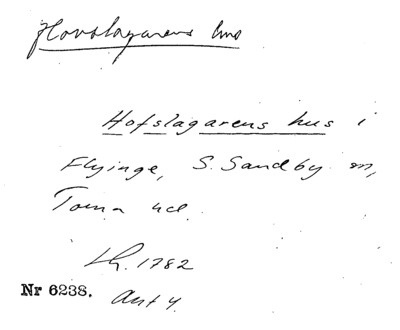 Hovslagarens hus
Hofslagarens hus i
Flyinge, S. Sandby sn,
Torna hd.
Lh. 1782
Nr 6238. Ant 4.